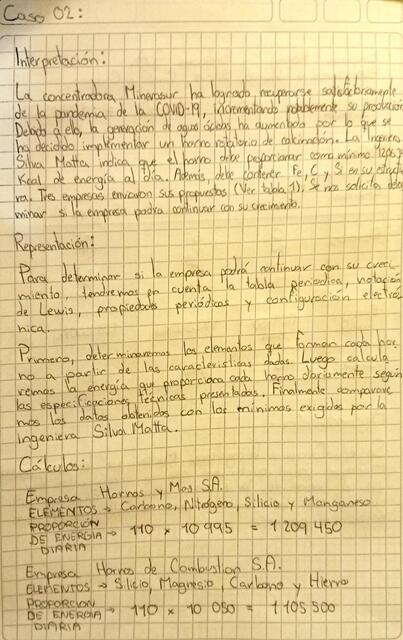 Caso 02:
Interpretación:
La concentradora Minerosur ha logrado recuperarse satisfactoriamente
de la pandemia de la COVID-19, incrementando notablemente su producción
Debido a ello, la generación de aguas ácidas ha aumentado por lo que se
ha decidido implementar un horno rotatorio de calcinación. La Ingeniera
Silva Matta indica que el horno debe proporcionar como mínimo
Kcal de energía al día. Además, debe contener Fe, C y Si en su estructu
ra. Tres empresas enviaron sus propuestas (Ver tabla 1). Se nos solicita deter
minar si la empresa podrá continuar con su crecimiento.
Representación:
Para determinar si la empresa podrá continuar con su creci
miento, tendremos en cuenta la tabla periodica, notación
de Lewis, propiedades periódicas y configuración electró
nica.
Primero, determinaremos los elementos que forman cada hor
no a partir de las características dadas. Luego calcula
remos la energía que proporciona cada horno diariamente según
las especificaciones técnicas presentadas. Finalmente compárare
mos los datos obtenidos con los mínimos exigidos por la
Ingeniera Silva Matta.
Cálculos:
Empresa Hornos y Mas S.A.
ELEMENTOS → Carbono, Nitrógeno, Silicio y Manganeso
PROPORCIÓN
DE ENERGÍA → 110 × 10 995 = 1 209 450
DIARIA
Empresa Hornos de Combustion S.A.
ELEMENTOS → Silicio, Magnesio, Carbono y Hierro
PROPORCION
DE ENERGÍA → 110 × 10 050 = 1 105 500
DIARIA